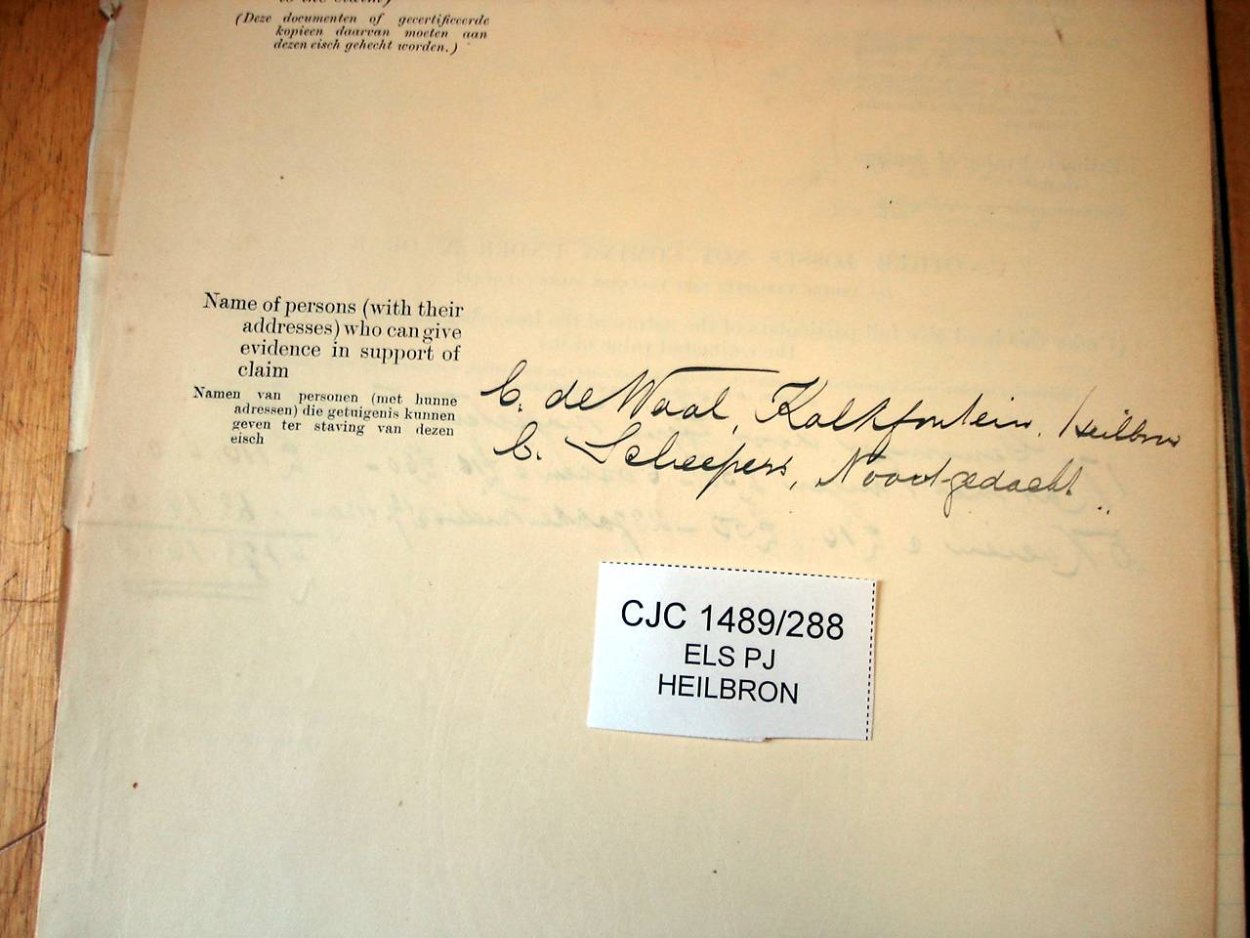 (Deze documenten of gecertificeerde
kopieen daarvan moeten aan
dezen eisch gehecht worden.)
Name of persons (with their
addresses) who can give
evidence in support of
claim
Namen van personen (met hunne
adressen) die getuigenis kunnen
geven ter staving van dezen
eisch
C. de Waal, Kalkfontein, Heilbron
C. Scheepers, Nooitgedacht.
CJC 1489/288
ELS PJ
HEILBRON